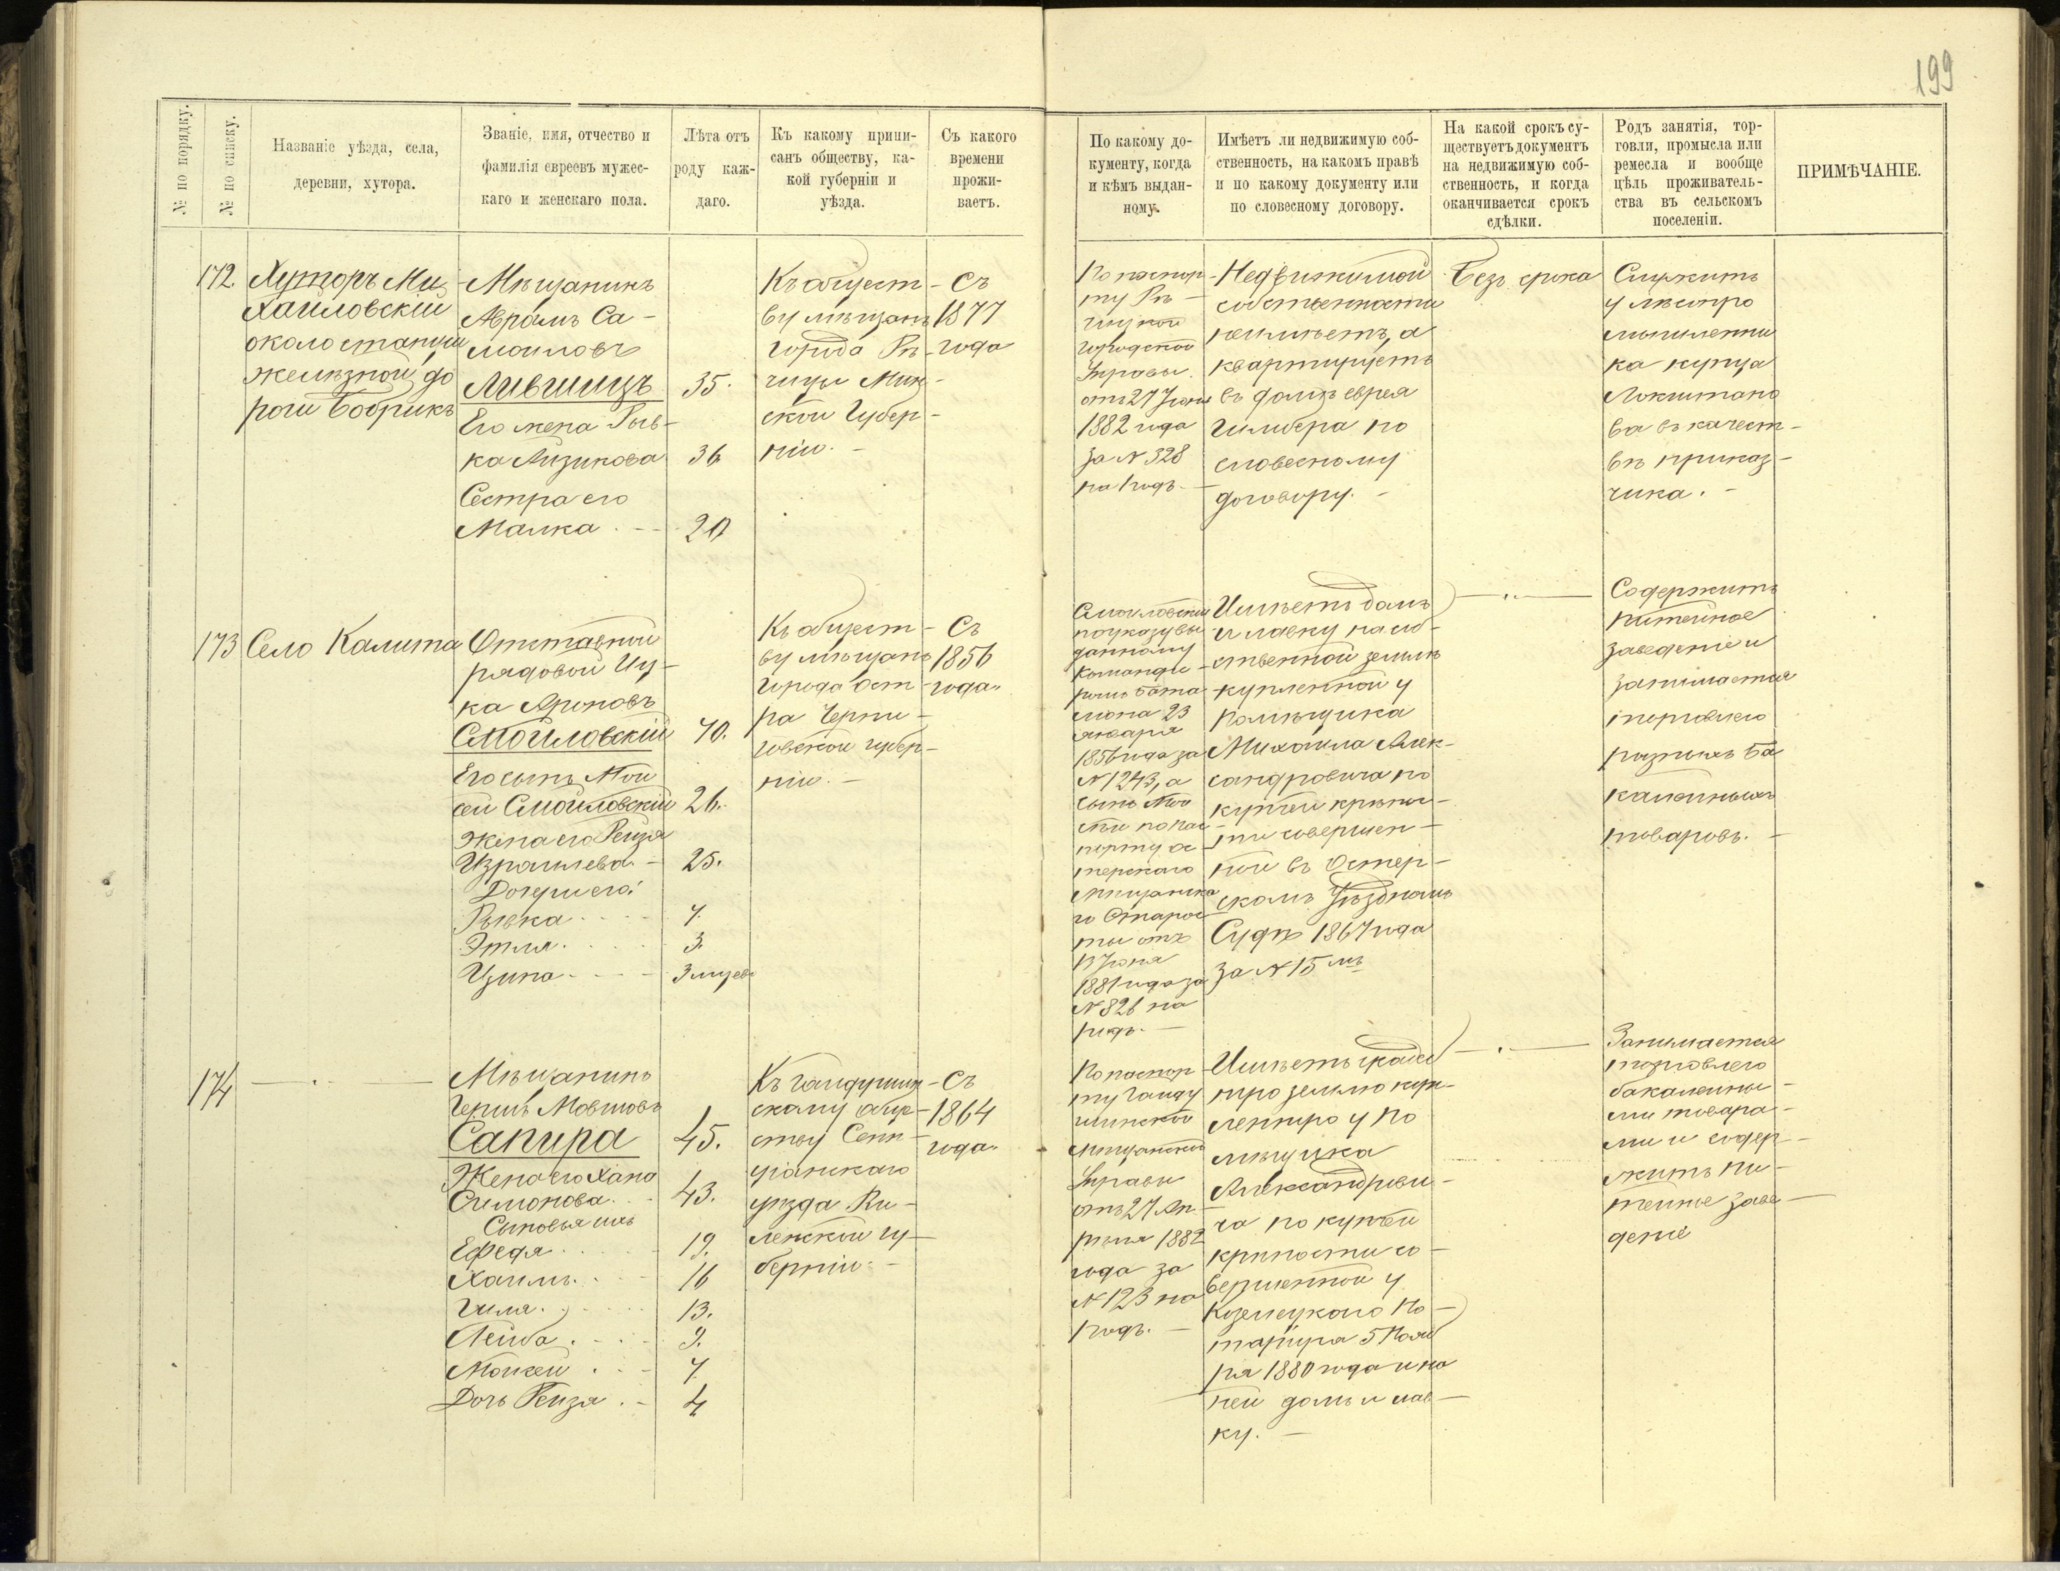 199
№ по порядку.
№ по списку.
Названіе уѣзда, села,
деревни, хутора.
Званіе, имя, отчество и
фамилія евреевъ мужес-
каго и женскаго пола.
Лѣта отъ
роду каж-
даго.
Къ какому припи-
санъ обществу, ка-
кой губерніи и
уѣзда.
Съ какого
времени
прожи-
ваетъ.
По какому до-
кументу, когда
и кѣмъ выдан-
ному.
Имѣетъ ли недвижимую соб-
ственность, на какомъ правѣ
и по какому документу или
по словесному договору.
На какой срокъ су-
ществуетъ документъ
на недвижимую соб-
ственность, и когда
оканчивается срокъ
сдѣлки.
Родъ занятія, тор-
говли, промысла или
ремесла и вообще
цѣль проживатель-
ства въ сельскомъ
поселеніи.
ПРИМѢЧАНІЕ.
172.
Хуторъ Ми-
хайловскій
около станціи
желѣзной до
роги Бобрикъ
Мѣщанинъ
Аврамъ Са-
мойловъ
Лившицъ 35.
Его жена Рыв-
ка Айзикова 36
Сестра его
Малка . — 20
Къ общест-
ву мѣщанъ
города Рѣ-
чицы Мин-
ской Губер-
ніи. —
Съ
1877
года
По паспор-
ту Рѣ-
чицкой
городской
Управы
отъ 27 Іюня
1882 года
за № 328
на 1 годъ. —
Недвижимой
собственности
неимѣетъ, а
квартируетъ
въ домѣ еврея
Гимбера по
словесному
договору. —
Безъ срока
Служитъ
у лѣсопро
мышленни
ка купца
ва въ качест-
вѣ приказ-
чика. —
173
Село Калита
Отставной
рядовой Иц-
ка Ароновъ
Смоиловскій 70.
Его сынъ Мои
сей Смоиловскій 26.
Жена его Рейзя
Израилева — 25.
Дочери его:
Рывка . . . 7.
Этля . . . 3.
Ципа . . . 3 мѣсяц
Къ общест-
ву мѣщанъ
города Ост-
ра Черни-
говской губер-
ніи. —
Съ
1856
года
Смоиловскій
по указу вы-
данному
Команди-
ромъ бата
ліона 23
января
1856 года за
№ 1243, а
сынъ Мои
сей по пас-
порту ос-
терскаго
мѣщанска
го Старос-
ты отъ
Іюня
1881 года за
№ 826 на
годъ. —
Имѣетъ домъ
и лавку на соб-
ственной землѣ
купленной у
помѣщика
Михаила Алек-
сандровича по
купчей крѣпос-
ти совершен-
ной въ Остер-
скомъ Уѣздномъ
Судѣ 1867 года
за № 15 мъ
— " —
Содержитъ
питейное
заведеніе и
занимается
торговлею
разныхъ ба
калейныхъ
товаровъ. —
174
— " —
Мѣщанинъ
Гершъ Мовшовъ
Сапира 45.
Жена его Хана
Симонова . . 43.
Сыновья ихъ
Ефедя . . . 19.
Хаимъ . . . 16
Гиля . . . 13.
Лейба . . . 9.
Мойсей . . . 7
Дочь Рейзя . — 4
Къ Гайдушин-
скому обще-
ству Свен-
цянскаго
уѣзда Ви-
ленской гу-
берніи. —
Съ
1864
года
По паспор-
ту Гайду
шинской
мѣщанской
Управы
отъ 27 Ап-
рѣля 1882
года за
№ 123 на
1 годъ. —
пленную у по
мѣщика
Александрови-
ча по купчей
крѣпости со-
вершенной у
Козелецкаго но-
таріуса 5 Нояб
ря 1880 года и на
ней домъ и лав-
ку. —
— " —
Занимается
торговлею
бакалейны-
ми товара-
ми и содер-
житъ пи-
тейное заве-
деніе